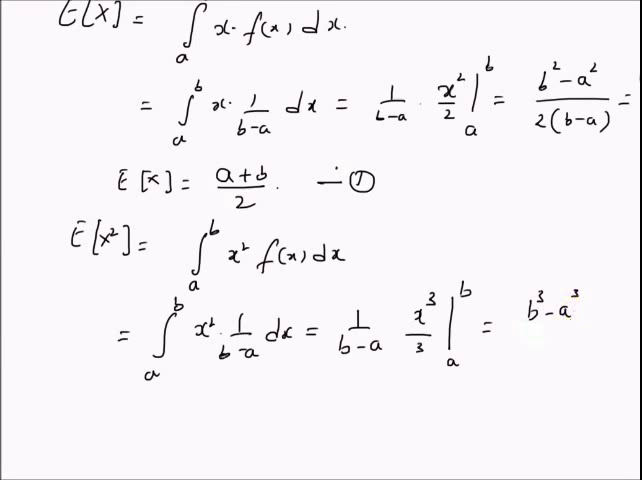 E[X] = ∫ₐ x· f(x) dx.
= ∫ₐᵇ x· 1/(b-a) dx = 1/(b-a) · x²/2 |ₐᵇ = (b² - a²)/(2(b-a)) =
E[X] = (a+b)/2 . — ①
E[X²] = ∫ₐᵇ x² f(x) dx
= ∫ₐᵇ x² · 1/(b-a) dx = 1/(b-a) x³/3 |ₐᵇ = b³ - a³